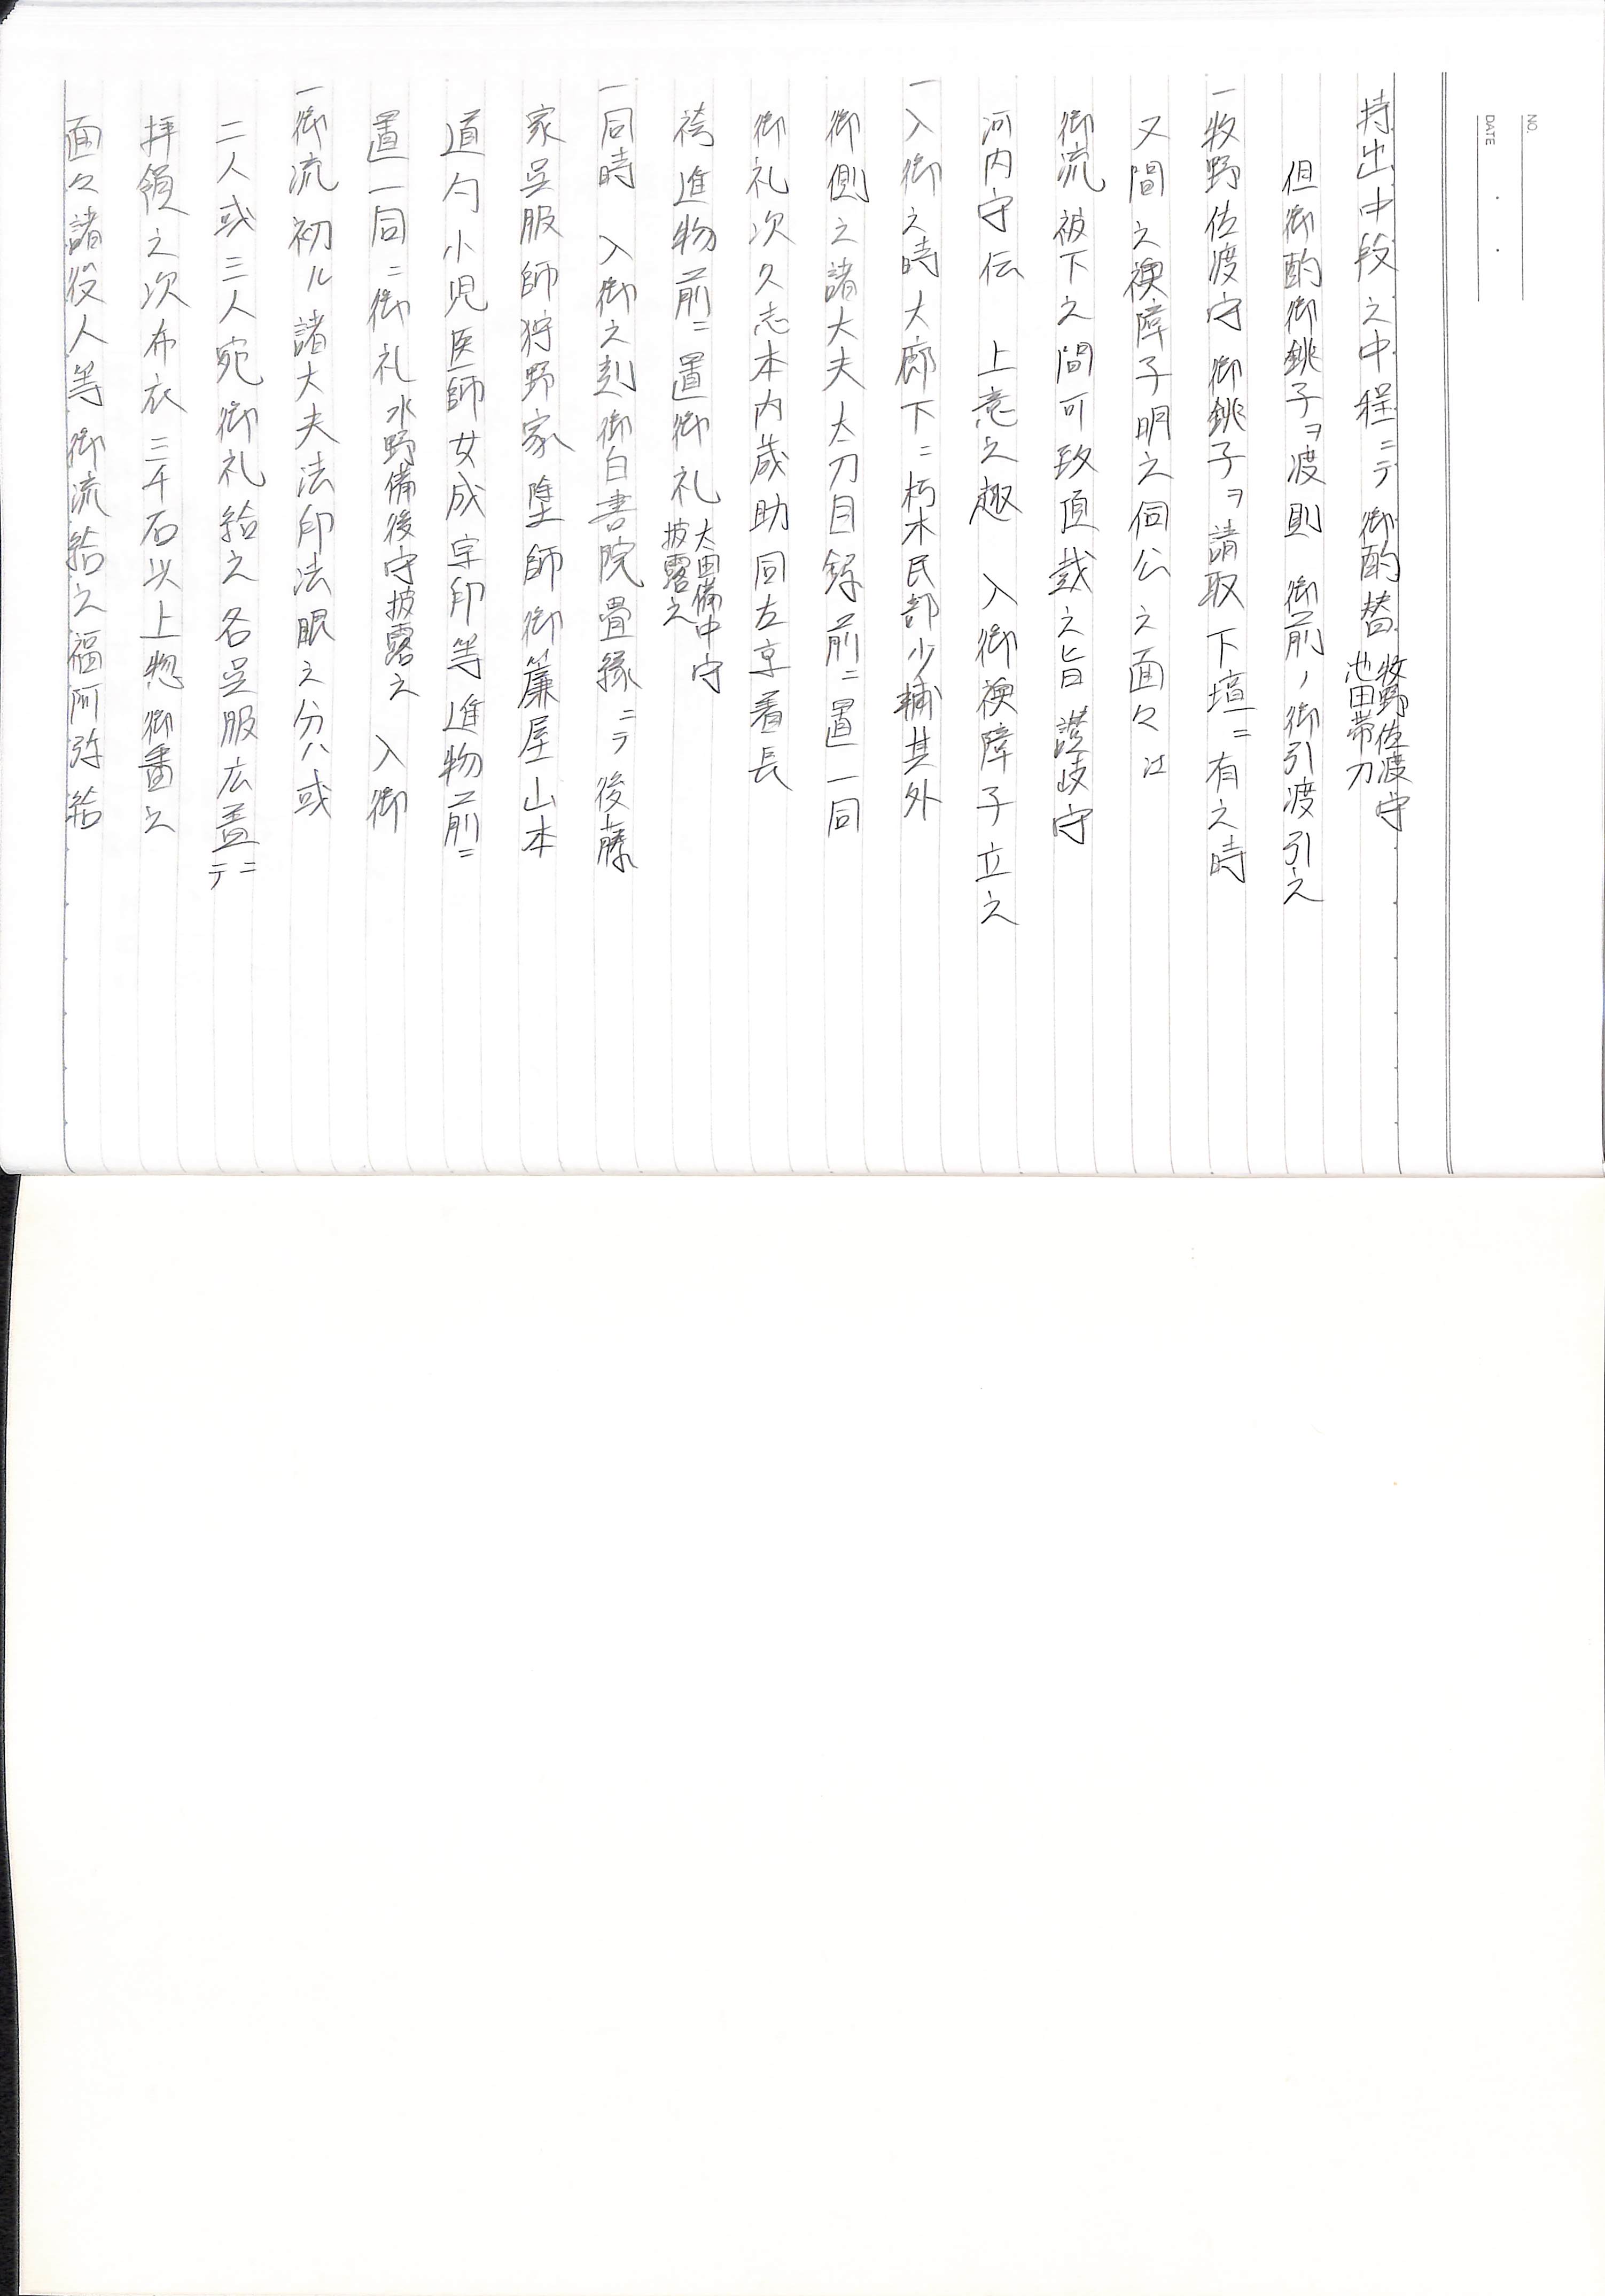 NO.
DATE
持出中段之中程ニテ御酌替 牧野佐渡守 池田帯刀
但御酌御銚子ヲ渡則 御前ノ御引渡引之
一牧野佐渡守御銚子ヲ請取下壇ニ有之時
又間之襖障子明之伺公之面々江
御流被下之間可致頂戴之旨讃岐守
河内守伝 上意之趣 入御襖障子立之
一入御之時大廊下ニ朽木民部少輔其外
御側之諸大夫太刀目録前ニ置一同
御礼次久志本内蔵助同左京着長
袴進物前ニ置御礼 太田備中守 披露之
一同時 入御之刻御白書院畳縁ニテ後藤
家呉服師狩野家 師御簾屋山本
道勺小児医師女成宗印等進物前ニ
置一同ニ御礼 水野備後守披露之 入御
一御流初ル諸大夫法印法眼之分ハ或
二人或三人宛御礼給之各呉服広蓋ニテ
拝領之次布衣三千石以上惣御番之
面々諸役人等御流給之福阿弥給